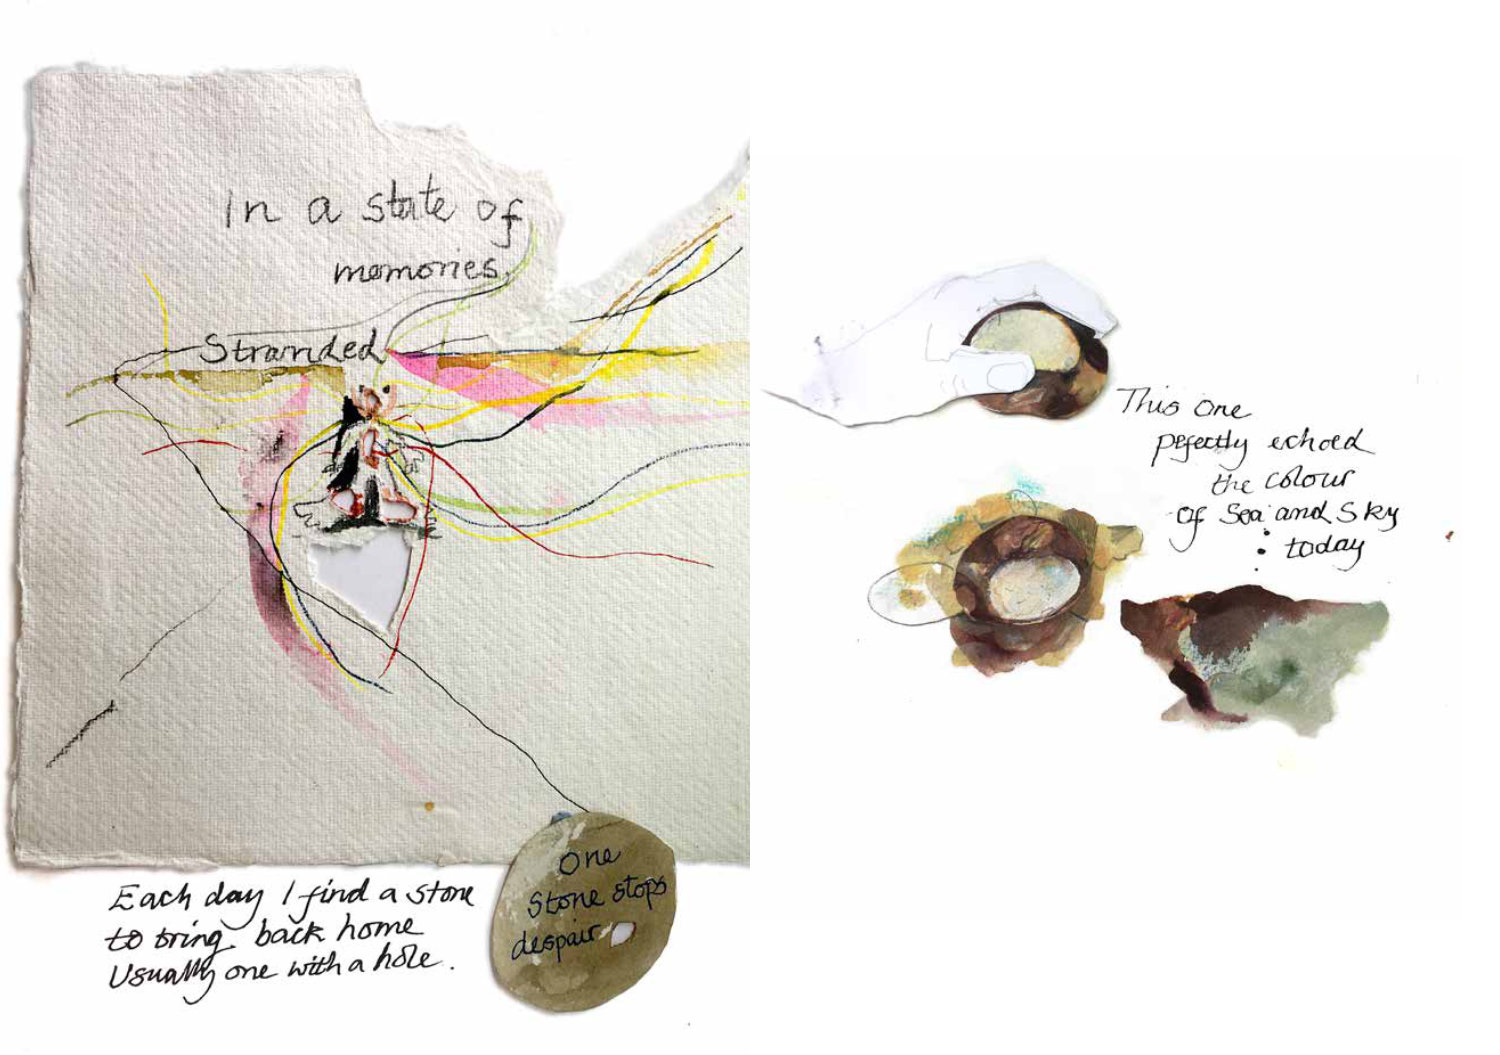 In a state of
memories
Stranded
Each day I find a stone
to bring back home
Usually one with a hole.
One
Stone stops
despair
This one
pefectly echoed
the colour
of Sea and Sky
today